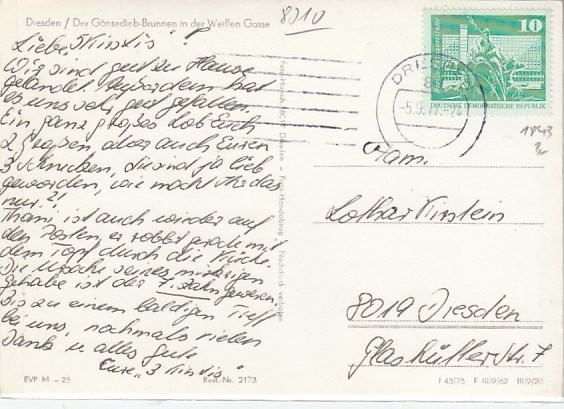 Dresden / Der Gänsedieb-Brunnen in der Weißen Gasse
8010
Liebe 5 Kirstis!
Wir sind gut zu Hause
gelandet. Außerdem hat
es uns sehr gut gefallen.
Ein ganz großes Lob Euch
2 Großen, aber auch Euren
3 Schnecken, die sind ja lieb
geworden, wie macht Ihr das
nur?!
ist auch wieder auf
den Posten, er robbt gerade mit
dem Topf durch die Küche.
Die Ursache seines
Gehabe ist der 7. Zahn gewesen.
Bis zu einem baldigen Treff
bei uns, nochmals vielen
Dank u. alles Gute
Eure "3 Kirstis"
EVP M –25
Best.-Nr. 2173
DRESDEN
8
-5.9.77.-
10
DEUTSCHE DEMOKRATISCHE REPUBLIK
1843
Fam.
Lothar Kirstein
8019 Dresden
Glashütter Str. 7
I 43/75 F III/9/62 III/9/20